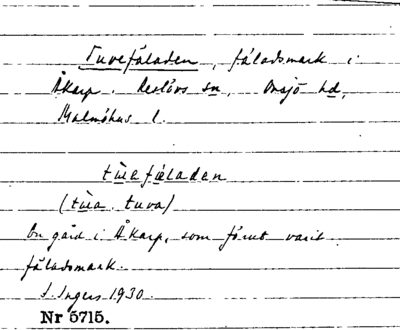 Tuvefäladen, fäladsmark i
Åkarp. Reslövs sn, Onsjö hd,
Malmöhus l.
tùefæladen
(tùa tuva)
En gård i Åkarp, som förut varit
fäladsmark.
I. Ingers 1930.
Nr 5715.